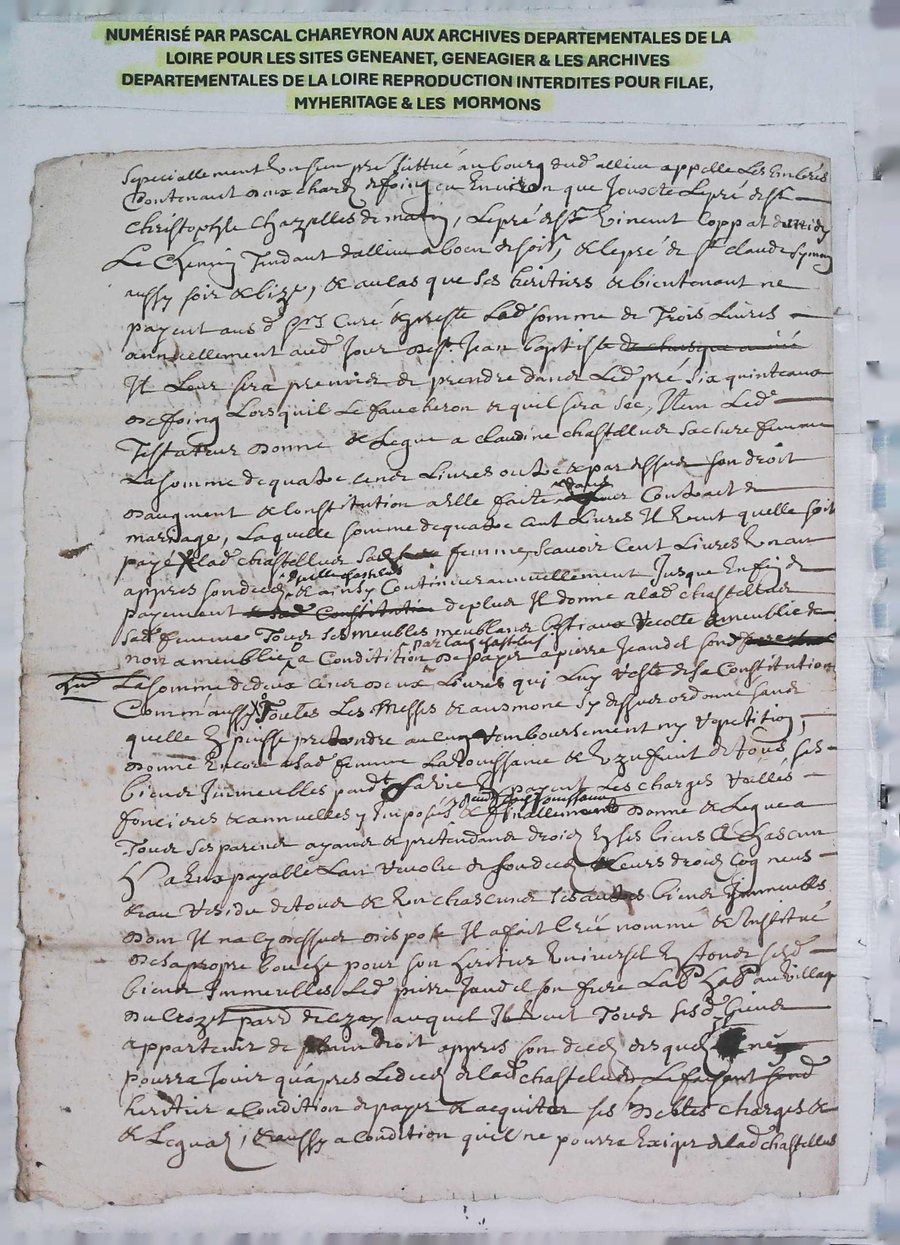 NUMÉRISÉ PAR PASCAL CHAREYRON AUX ARCHIVES DEPARTEMENTALES DE LA
LOIRE POUR LES SITES GENEANET, GENEAGIER & LES ARCHIVES
DEPARTEMENTALES DE LA LOIRE REPRODUCTION INTERDITES POUR FILAE,
MYHERITAGE & LES MORMONS
speciallement sur son pré scittué au bourg dud allieu appelle Les
Contenant deux chard de foing ou Environ que Jouxte Le pré de sr
christophle chazelles de matin, Le pré de sr vincent Coppat de midy
Le Chemin Tendant dallieu a boen de soir, & le pré de sr claude symon
aussy soir & bize, & au cas que ses heritiers & bientenant ne
payent ausd srs Curé & prestre Lad somme de Trois Livres
annuellement aud Jour de st Jean baptiste
Il Leur sera permis de prendre dans Led pré six quinteaux
de foing Lorsquil Le faucheron & quil sera sec, Item Led
Testateur donne & Legue a claudine chastellus sa chere femme
La somme de quatre cens Livres outre & par dessus son droit
daugment & Constitution a elle faite dans Contract de
mariage, La quelle somme de quatre cent Livres Il veut quelle soit
payé a lad chastellus sad femme, scavoir Cent Livres un an
appres son deces & ainsy Continuer annuellement Jusque Enfin de
payement de plus Il donne a lad chastellus
sad femme Tous ses meubles meublans bestiaux Recolte ameublie &
non ameublie a Condition par lad chastellus de payer a pierre Jandel son
La somme de deux cens deux Livres qui Luy reste de sa Constitution
Comm'aussy Toutes Les Messes & ausmone cy dessus ordonné sans
quelle En puisse pretendre aucun remboursement ny repetition,
donne Encore a sad femme La Jouissance & Uzufruit de tous ses
biens Immeubles pendt sa vie En payant Les charges
foncieres & annuelles y Imposés & finallement donne & Legue a
Tous ses parens ayans & pretendans droicts En ses biens a chascun
payable Lan revolu de son deces Leurs droicts
& au residu de tous & un chascuns ses autres biens Immeubles
dont Il na cy dessus disposé Il a fait Créé nommé & Institué
de sa propre bouche pour son heritier universel En tous sesd
biens Immeubles Led pierre Jandel son frere Labr habt au village
du Crozet parr de auquel Il veut Tous sesd biens
appartenir de plain droit appres son deces desquels Il ne
pourra Jouir quapres Le deces de lad chastellus
heritier a Condition de payer & acquiter ses debtes charges &
& Legats, & aussy a condition quil ne pourra Exiger de lad chastellus